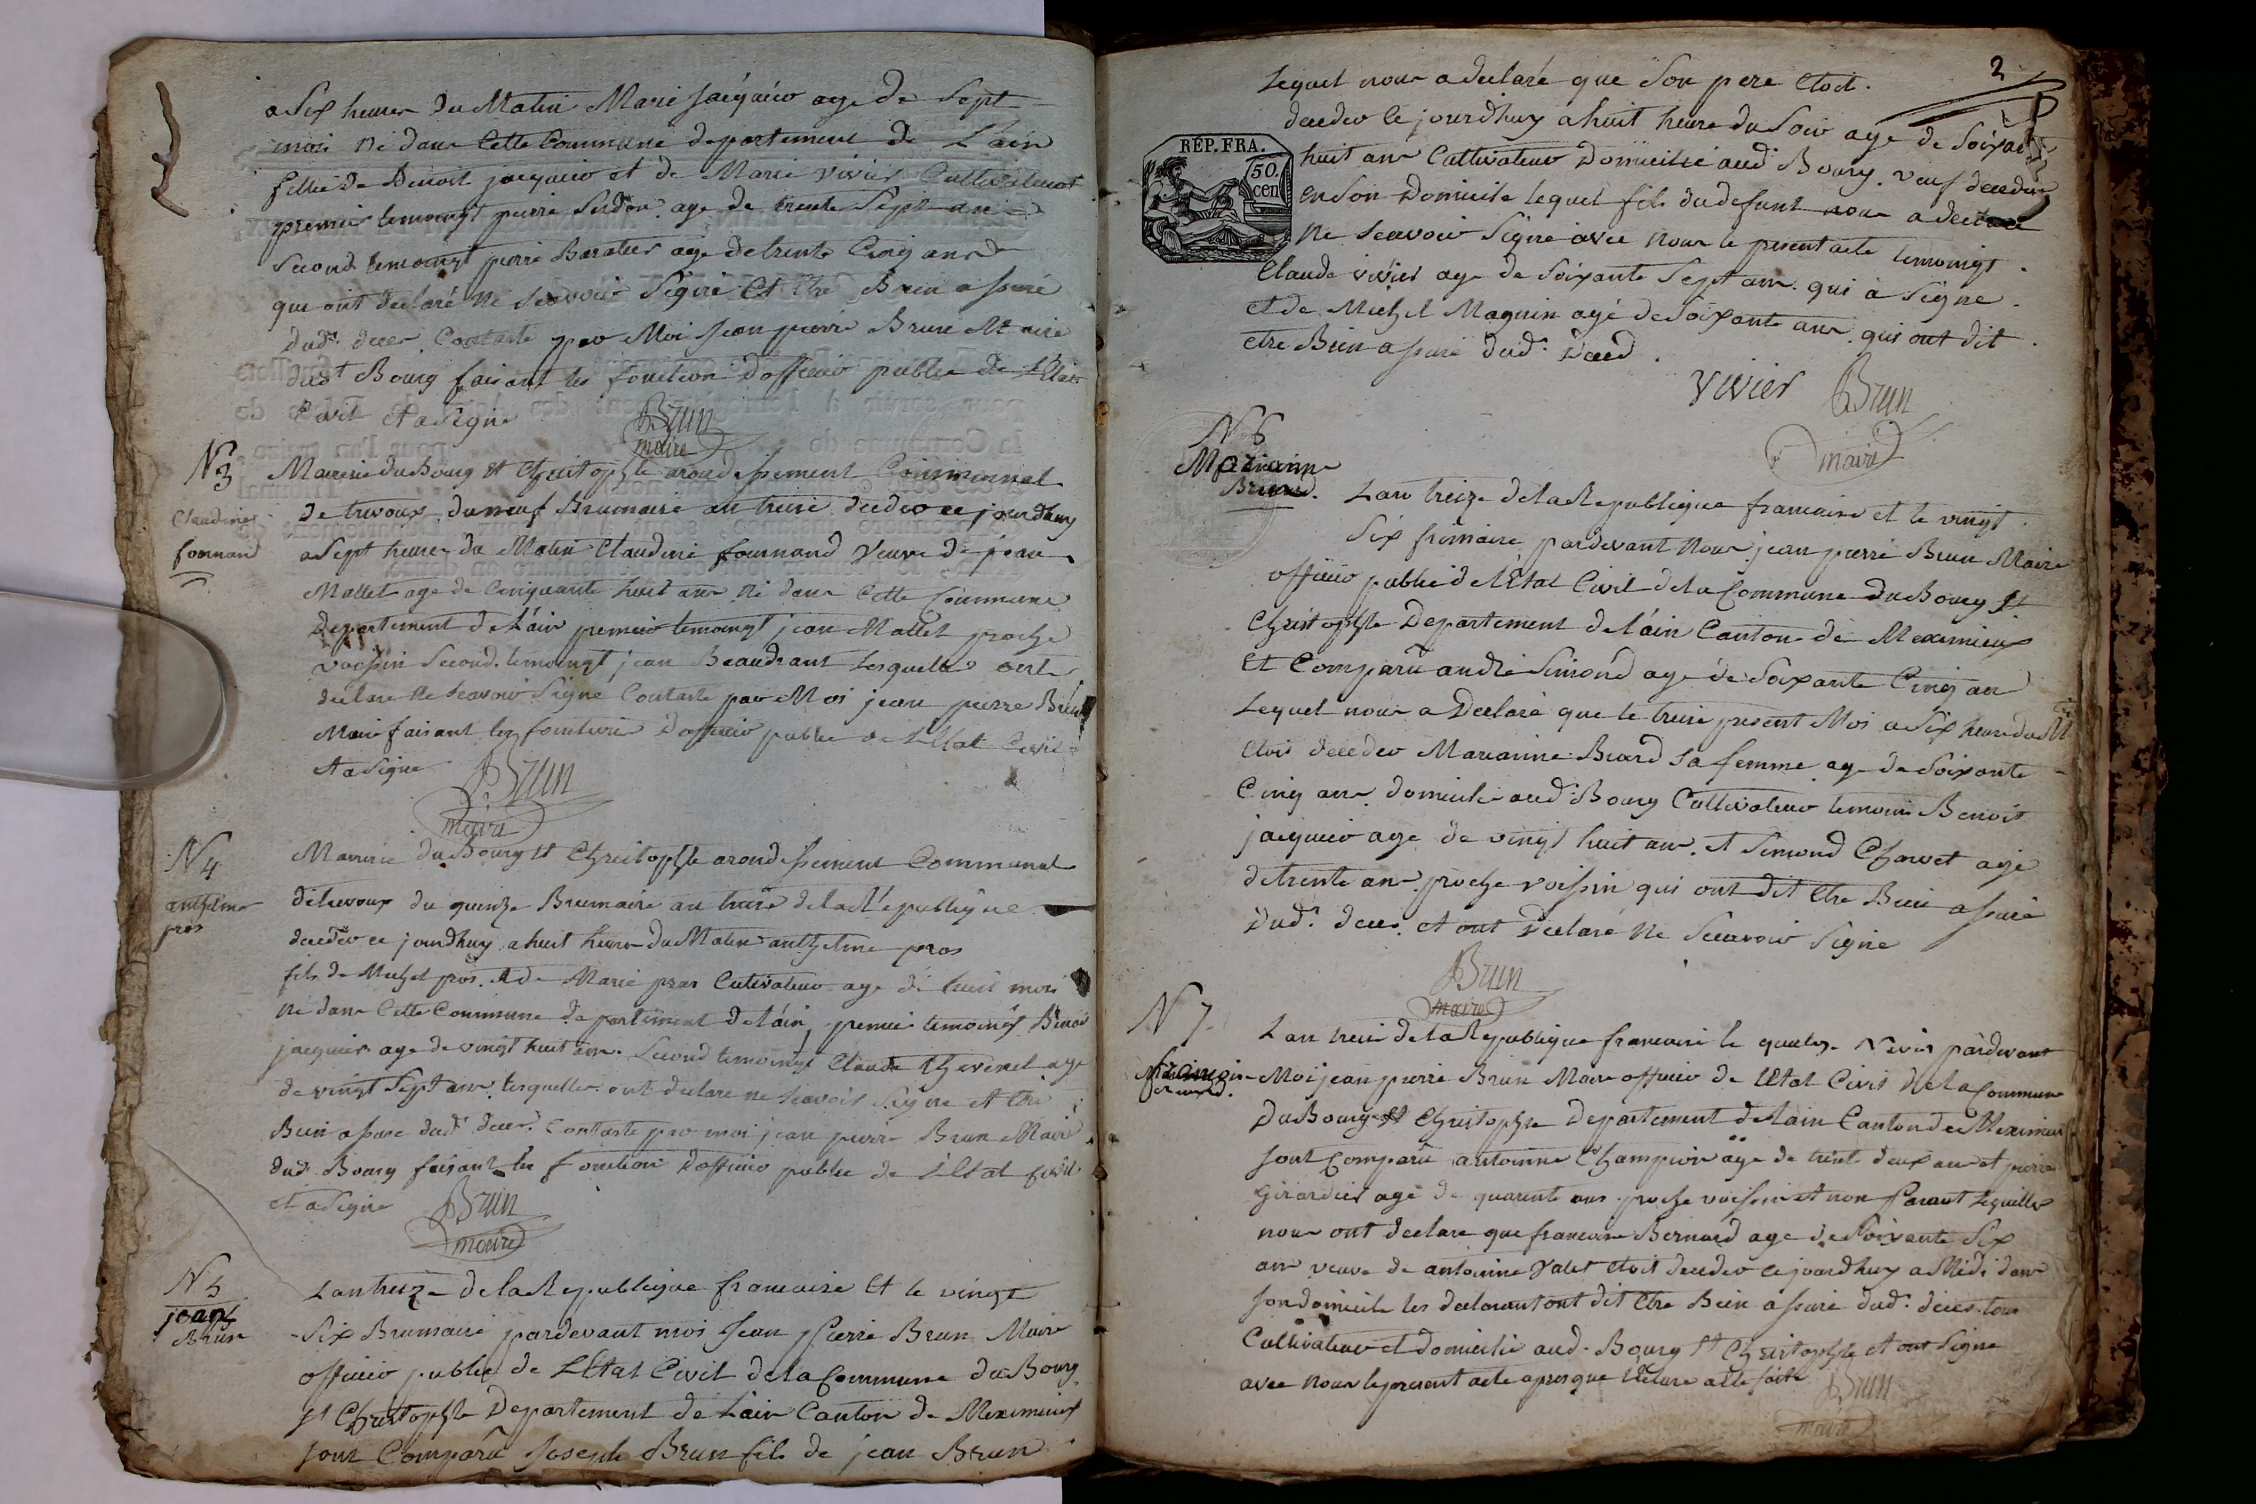 a Six heures du Matin Marie Jacquier age de Sept
mois né dans Cette Commune departement de L'ain
fillie de Benoit jacquier et de Marie vivier Cultivateur
premier temoingt pierre Serdon age de trente Sept ans
Second temoingt pierre Baratier age de trente Cinq ans
qui ont declaré ne Scavoir Signé Et Etre Bien assuré
dudt deces Contaté par Moi Jean pierre Brun Maire
dudt Bourg faisant les fonction d'officier public de L'Etat
Civil et a Signé
Brun
maire
N 3
Claudine
fournand
Mairie du Bourg St Christophle arondissement Communal
de trevoux du neuf Brumaire an treize decedee ce jourdhuy
a Sept heures du Matin Claudine fournand Veuve de jean
Mallet age de Cinquante huit ans né dans Cette Commune
Departement de L'ain premier temoingt jean Mallet proche
voissin Second temoingt jean Beaudrant Lesquelles ont
declare ne Scavoir Signé Contaté par Moi jean pierre Brun
Maire faisant les fonction D'officier public de L'Etat Civil
et a Signé
Brun
maire
N 4
anthelme
pros
Mairie du Bourg St Christophle arondissement Communal
de trevoux du quinze Brumaire an treize de la Republique
decedee ce jourdhuy a huit heures du Matin anthelme pros
fils de Michel pros et de Marie pras Cultivateur age de huit mois
né dans Cette Commune departement de L'ain premier temoingt Benoit
jacquier age de vingt huit ans Second temoingt Claude Thevenet age
de vingt Sept ans lesquelles ont declare ne Scavoir Signé et Etre
Bien assure dudt deces Contaté par moi jean pierre Brun Maire
dudt Bourg faisant les fonction D'officier public de L'Etat Civil
et a Signé
Brun
maire
N 5
jean
Brun
L an treize de la Republique francaise Et le vingt
Six Brumaire pardevant moi Jean pierre Brun Maire
officier public de L'Etat Civil de la Commune du Bourg
St Christophle Departement de L'ain Canton de Meximieux
sont Comparu Joseph Brun fils de jean Brun
2
Lequel nous a declaré que Son pere Etoit
decedee Ce jourdhuy a huit heure du Soir age de Soixante
huit ans Cultivateur Domicilié audt Bourg veuf decedee
en Son Domicile lequel fils du defunt nous a declaré
ne Scavoir Signé avec nous le present acte temoingt
Claude vivier age de Soixante Sept ans qui a Signé
et de Michel Magnin agé de Soixante ans qui ont dit
etre Bien assuré dudt Deced
RÉP. FRA.
50.
cen
vivier
Brun
maire
N 6
Marianne
L an treize de la Republique francaise et le vingt
Six frimaire pardevant Nous jean pierre Brun Maire
officier public de L'Etat Civil de la Commune du Bourg St
Christophle Departement de L'ain Canton de Meximieux
Et Comparu andré Simond agé de Soixante Cinq an
Lequel nous a Declaré que le treize present Mois a Six heure du M
Etois decedee Marianne Beard Sa femme age de Soixante
Cinq ans domicilié audt Bourg Cultivateur temoins Benoit
jacquier age de vingt huit ans et Simond Charvet agé
de trente ans proche voissin qui ont dit Etre Bien assuré
dudt deces et ont Declaré ne Scavoir Signé
Brun
maire
N 7
L an treize de la Republique francaise le quatorze Nivos pardevant
Moi jean pierre Brun Maire officier de L'Etat Civil de la Commune
Du Bourg St Christophle Departement de L'ain Canton de Meximieux
sont Comparu antoinne Champion age de trente deux ans et pierre
Girardier agé de quarente ans proche voissin et non Parant Lesquelles
nous ont declare que francoise Bernard age de Soixante Six
ans veuve de antoinne Valet Etoit decedee Ce jourdhuy a Midi dans
son domicile les declarant ont dit Etre Bien assuré dudt deces tous
Cultivateur et domicilié audt Bourg St Christophle et ont Signé
avec nous le present acte apres que Lecture a été faite
Brun
maire